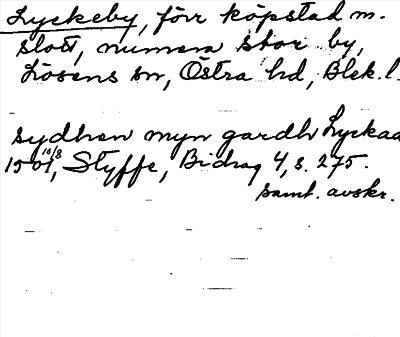 Lyckeby, förr köpstad m.
slott, numera stor by,
Lösens sn, Östra hd, Blek. l.
sydhen myn gardh Lyckaa
1501 10/8, Styffe, Bidrag 4, s. 275.
samt. avskr.